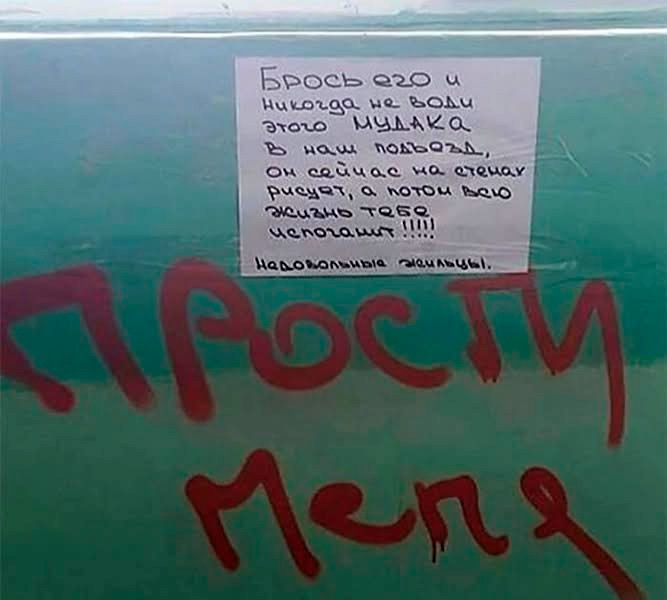 Брось его и
никогда не води
этого МУДАКА
в наш подъезд,
он сейчас на стенах
рисует, а потом всю
жизнь тебе
испоганит!!!!!
Недовольные жильцы.
ПРОСТИ
меня